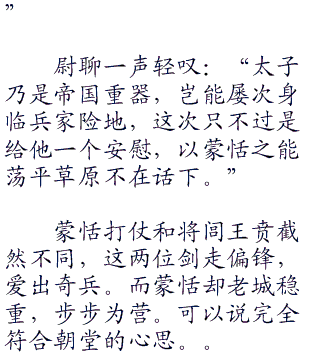 ”
尉聊一声轻叹：“太子
乃是帝国重器，岂能屡次身
临兵家险地，这次只不过是
给他一个安慰，以蒙恬之能
荡平草原不在话下。”
蒙恬打仗和将闾王贲截
然不同，这两位剑走偏锋，
爱出奇兵。而蒙恬却老城稳
重，步步为营。可以说完全
符合朝堂的心思。。